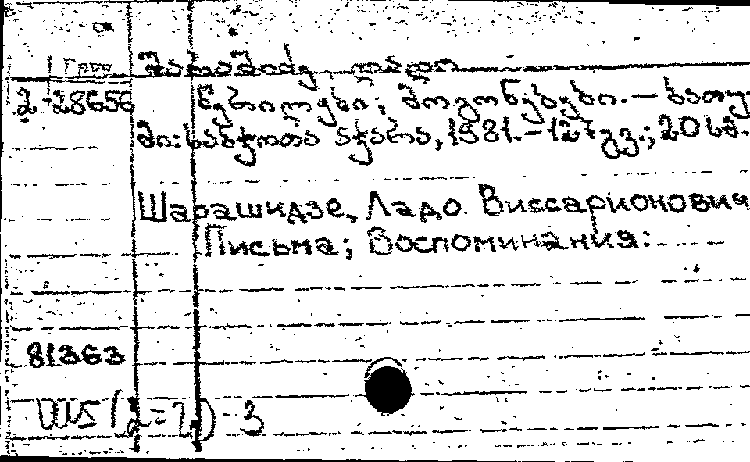 შარაშიძე, ლადო
2-28656 წერილები; მოგონებები. — ბათუ-
მი: საბჭოთა აჭარა, 1981. - 127 გვ.; 20 სმ.
Шарашидзе, Ладо Виссарионович
Письма; Воспоминания:
81363